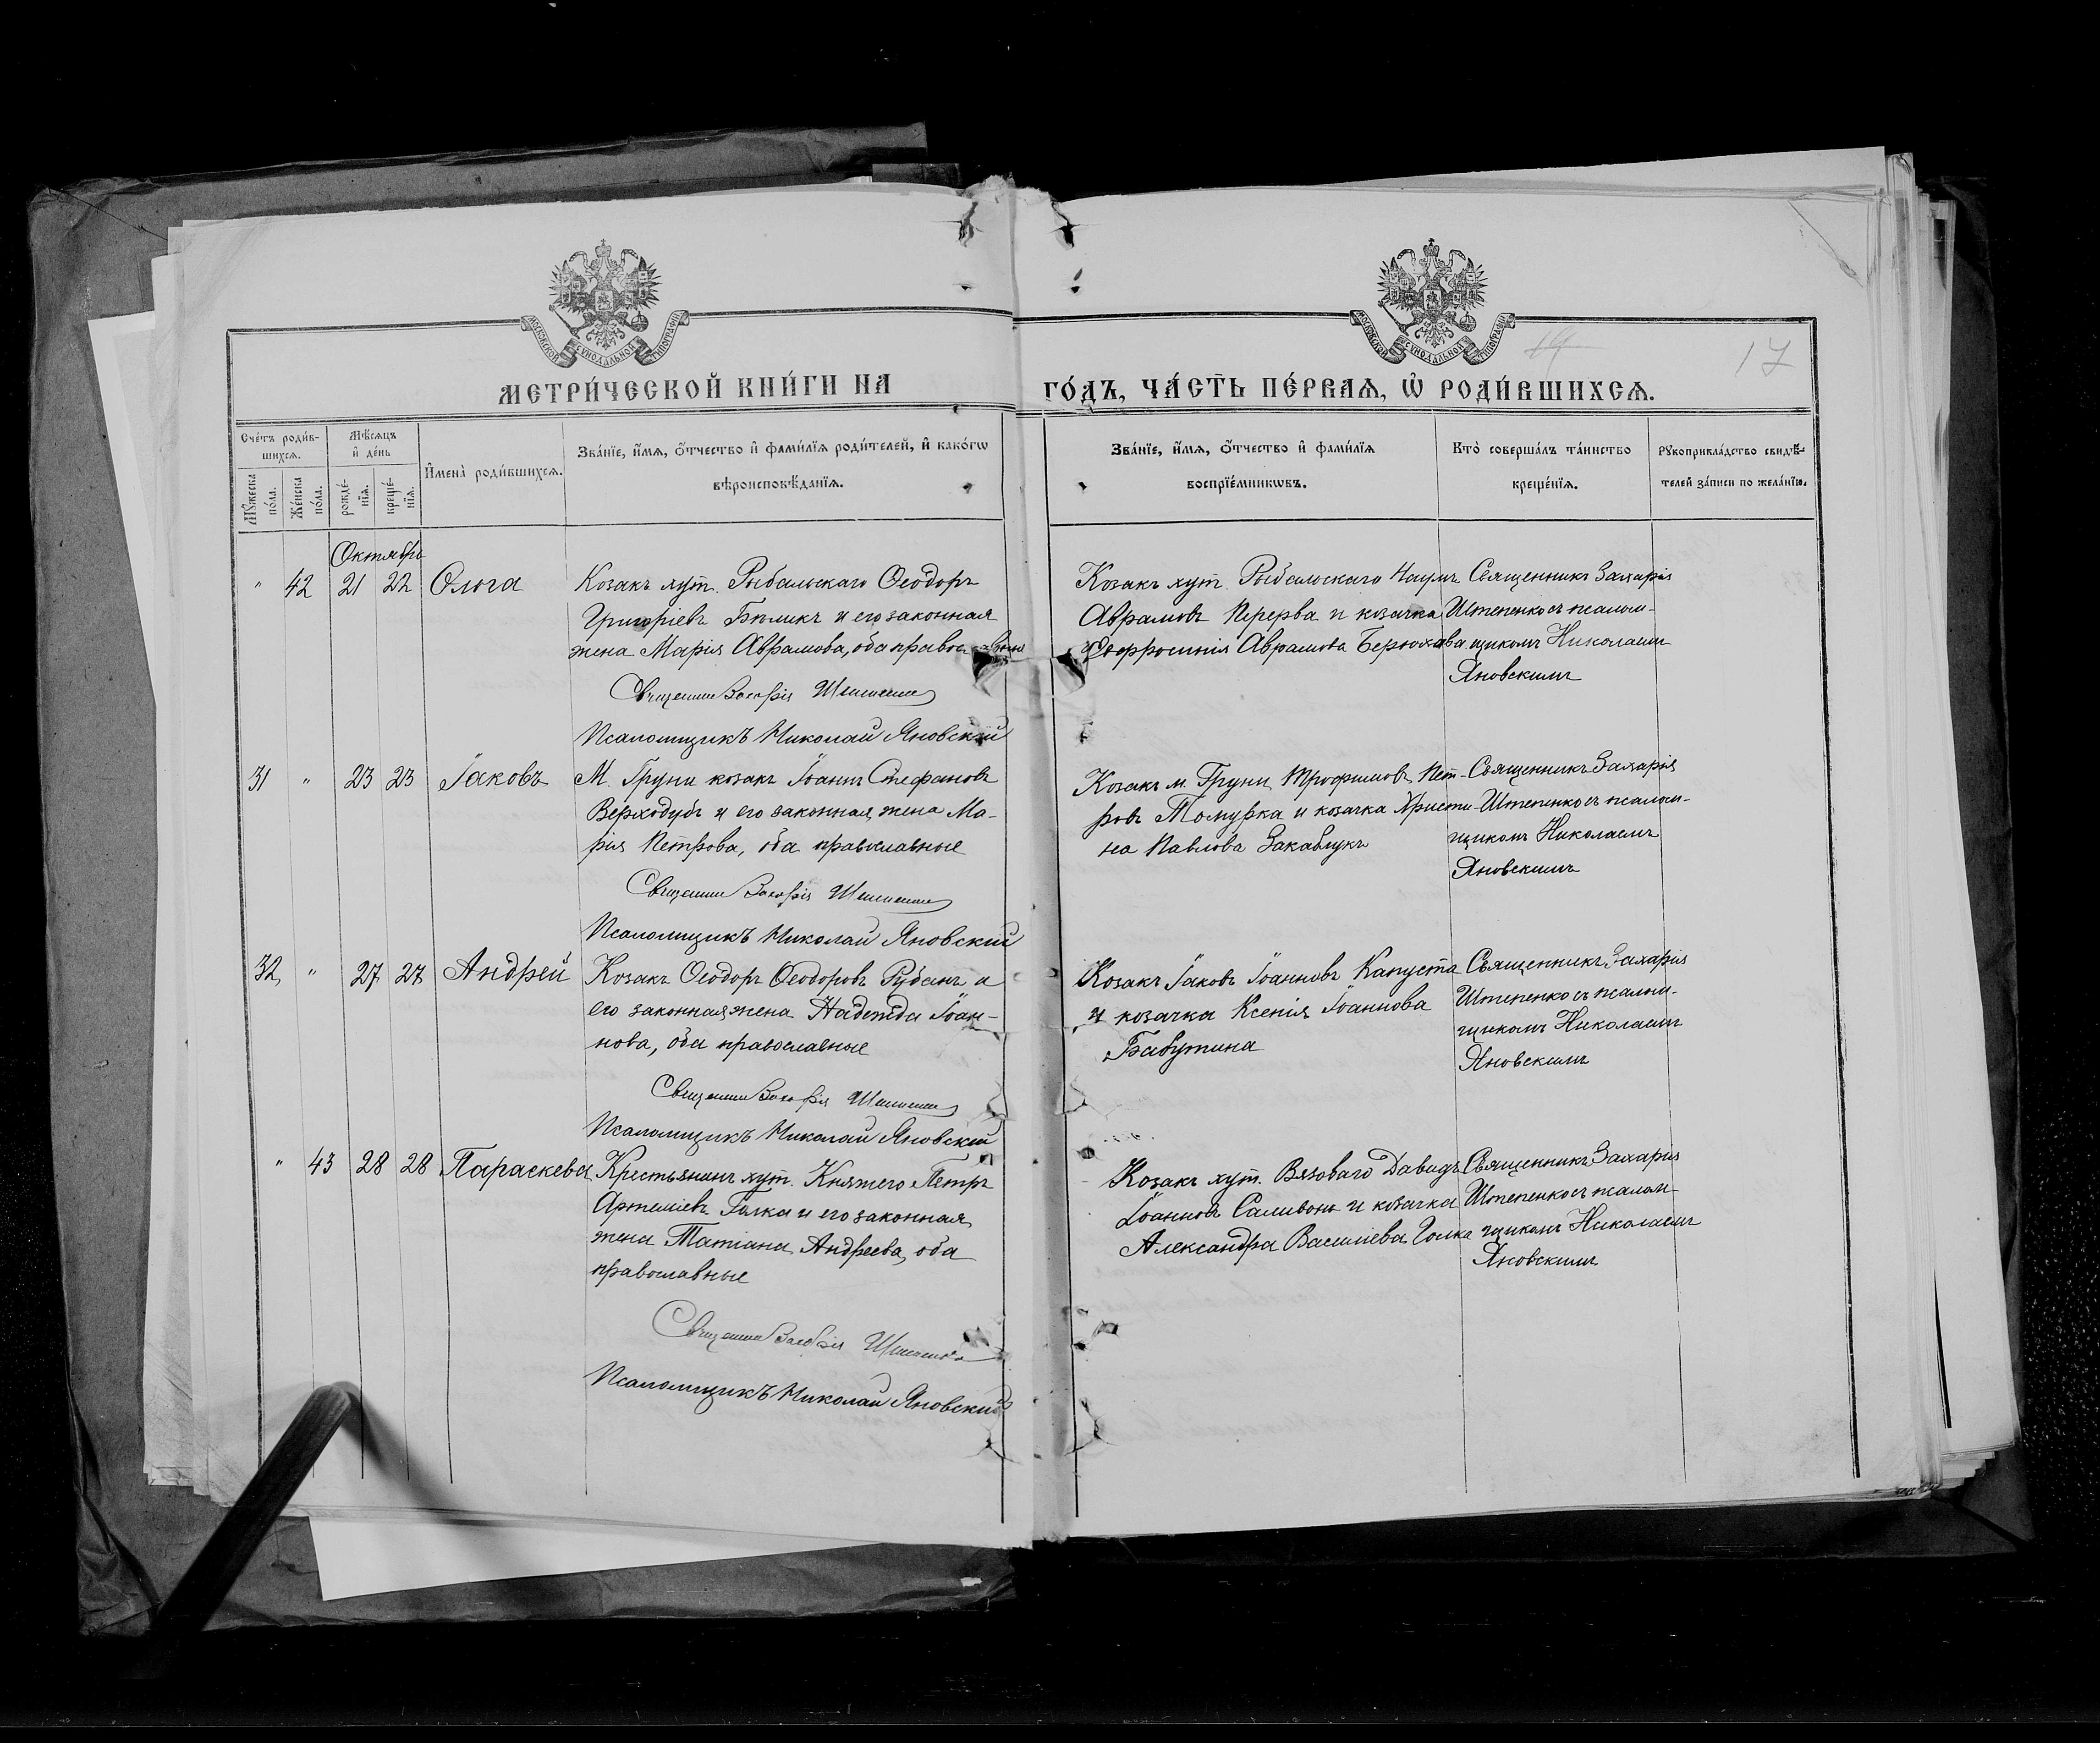 МОСКОВСКОЙ СѴНОДАЛЬНОЙ ТИПОГРАФІИ
МОСКОВСКОЙ СѴНОДАЛЬНОЙ ТИПОГРАФІИ
19
17
МЕТРИ́ЧЕСКОЙ КНИ́ГИ НА
ГО́ДЪ, ЧА́СТЬ ПЕ́РВАѦ, Ѡ РОДИ́ВШИХСѦ.
Сче́тъ роди́в-
шихсѧ.
Мꙋ́жеска по́ла.
Же́нска по́ла.
Мѣ́сѧцъ
и де́нь
рожде́-
нїѧ.
креще́-
нїѧ.
Имена̀ роди́вшихсѧ.
Зва́нїе, и́мѧ, о́тчество и фами́лїѧ роди́телей, и како́гѡ
вѣроисповѣ́данїѧ.
Зва́нїе, и́мѧ, о́тчество и фами́лїѧ
воспрїе́мникѡвъ.
Кто̀ соверша́лъ та́инство
креще́нїѧ.
Рꙋкоприкла́дство свидѣ́-
телей за́писи по жела́нїю.
Октября
" 42 21 22 Ольга
Козакъ хут. Рыбальскаго Ѳеодоръ
Григоріевъ Бѣликъ и его законная
жена Марія Аврамова, оба православные
Священникъ Захарія Штепенко
Псаломщикъ Николай Яновскій
Козакъ хут. Рыбальскаго Наумъ
Аврамовъ Перерва и козачка
Евфросинія Аврамова Берюхова
Священникъ Захарія
Штепенко съ псалом-
щикомъ Николаемъ
Яновскимъ
31 " 23 23 Іаковъ
М. Груни козакъ Іоаннъ Стефановъ
Верходубъ и его законная жена Ма-
рія Петрова, оба православные
Священникъ Захарія Штепенко
Псаломщикъ Николай Яновскій
Козакъ м. Груни Трофимовъ Пет-
ровъ Томурка и козачка Христи-
на Павлова Закавлукъ
Священникъ Захарія
Штепенко съ псалом-
щикомъ Николаемъ
Яновскимъ
32 " 27 27 Андрей
Козакъ Ѳеодоръ Ѳеодоровъ Рубанъ и
его законная жена Надежда Іоан-
нова, оба православные
Священникъ Захарія Штепенко
Псаломщикъ Николай Яновскій
Козакъ Іаковъ Іоанновъ Капуста
и козачка Ксенія Іоаннова
Бабутина
Священникъ Захарія
Штепенко съ псалом-
щикомъ Николаемъ
Яновскимъ
" 43 28 28 Параскева
Крестьянинъ хут. Княжего Петръ
Артеміевъ Галка и его законная
жена Татіана Андреева, оба
православные
Священникъ Захарія Штепенко
Псаломщикъ Николай Яновскій
Козакъ хут. Вязоваго Давидъ
Іоанновъ Саливонъ и козачка
Александра Василіева Голка
Священникъ Захарія
Штепенко съ псалом-
щикомъ Николаемъ
Яновскимъ